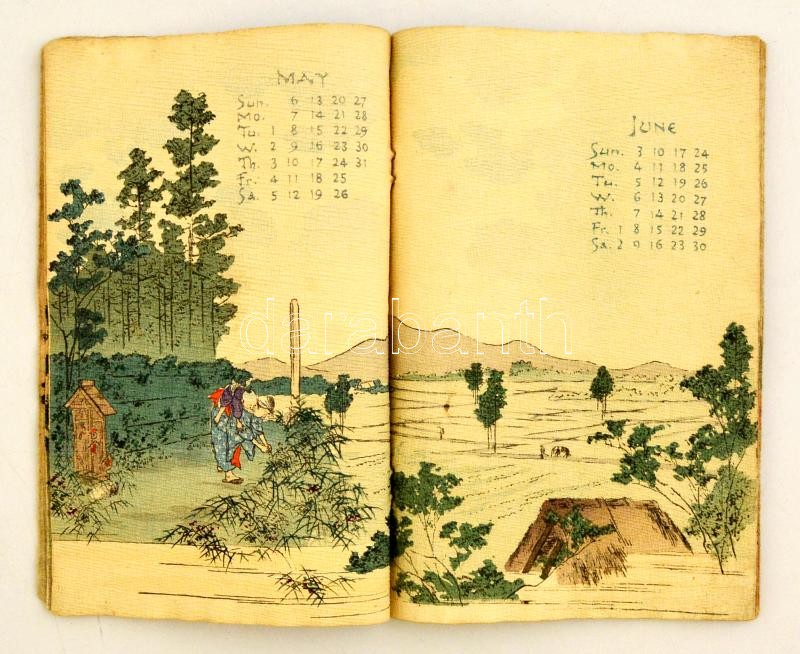 MAY
Sun. 6 13 20 27
Mo. 7 14 21 28
Tu. 1 8 15 22 29
W. 2 9 16 23 30
Th. 3 10 17 24 31
Fr. 4 11 18 25
Sa. 5 12 19 26
JUNE
Sun. 3 10 17 24
Mo. 4 11 18 25
Tu. 5 12 19 26
W. 6 13 20 27
Th. 7 14 21 28
Fr. 1 8 15 22 29
Sa. 2 9 16 23 30
darabanth